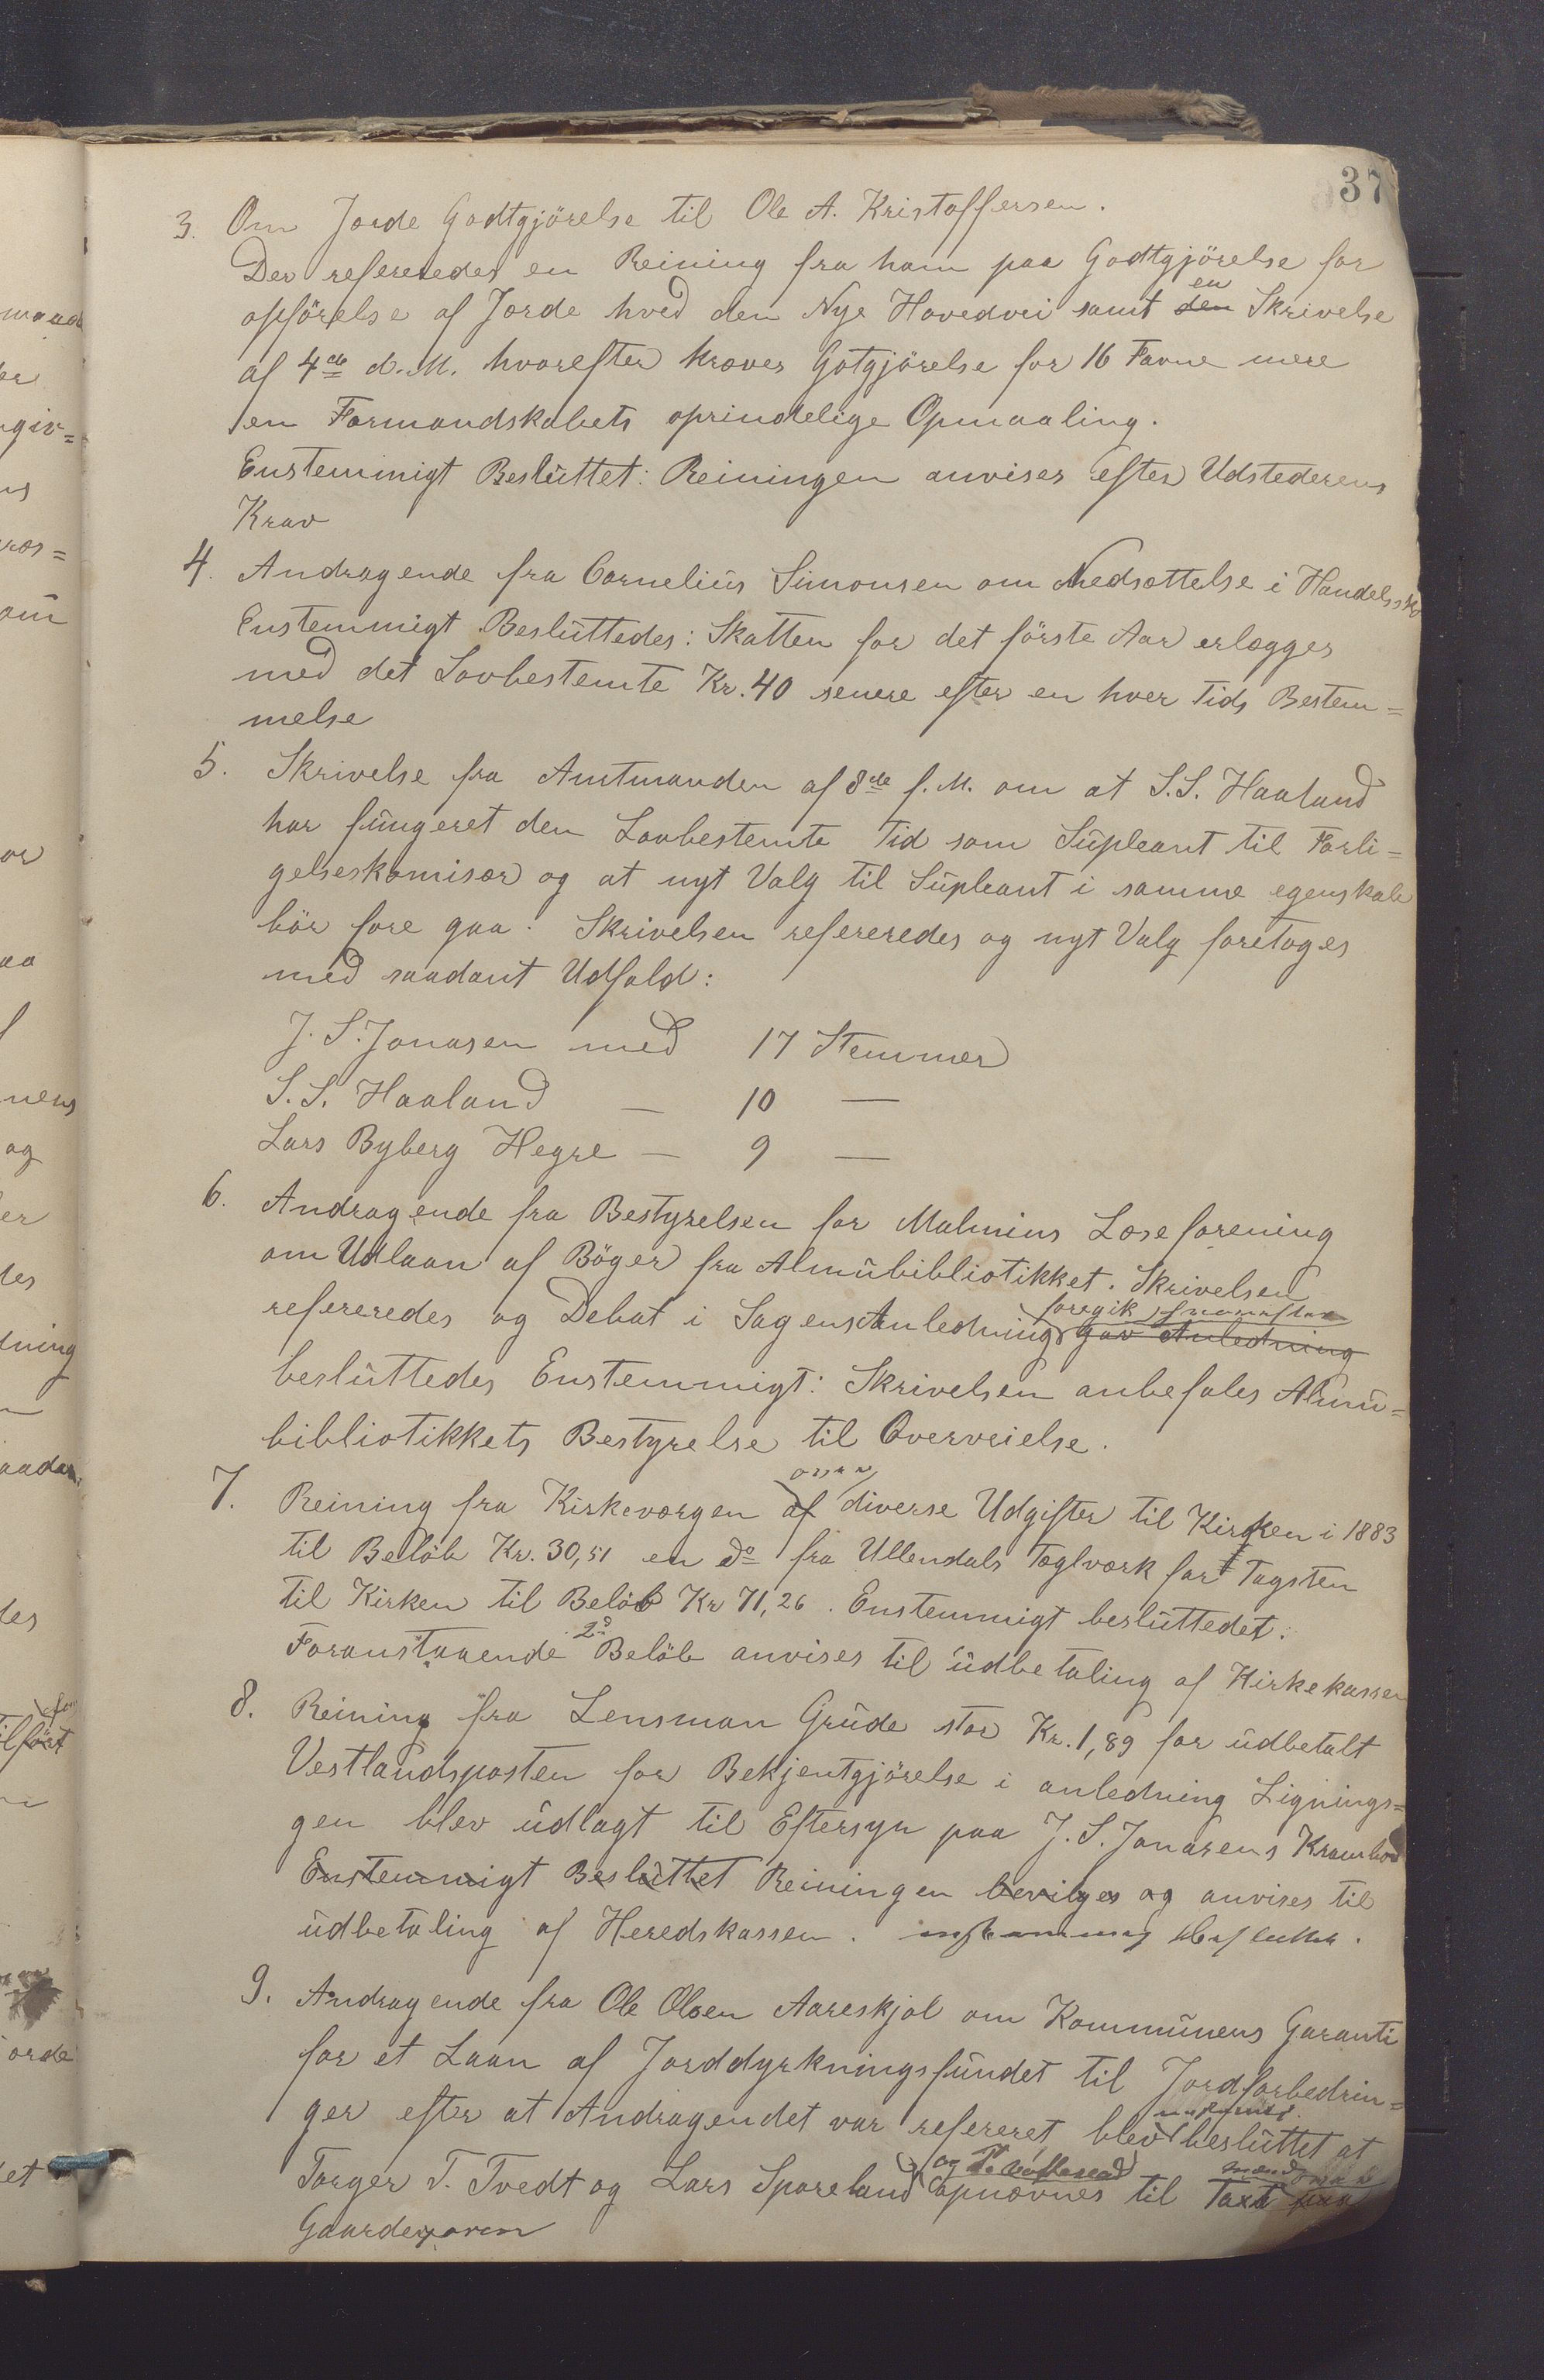 37
3. Om Jorde Godtgjörelse til Ole A. Kristoffersen.
Der refereredes en Reining fra ham paa Godtgjörelse for
opförelse af Jorde hved den Nye Hovedvei samt en Skrivelse
af 4de d. M. hvorefter kræves Gotgjörelse for 16 Favne mere
en Formandskabets oprindelige Opmaaling.
Enstemmigt Besluttet: Reiningen anvises efter Udstederens
Krav
4. Andragende fra Cornelius Simonsen om Nedsættelse i Handelssk
Enstemmigt Besluttedes: Skatten for det förste Aar erlægges
med det Lovbestemte Kr. 40 senere efter en hver Tids Bestem=
melse
5. Skrivelse fra Amtmanden af 8de f. M. om at S. S. Haaland
har fungeret den Lovbestemte Tid som Supleant til Forli=
gelseskomisær og at nyt Valg til Supleant i samme egenskab
bör fore gaa. Skrivelsen refereredes og nyt Valg foretoges
med saadant Udfald:
J. S. Jonasen med 17 Stemmer
S. S. Haaland — 10 —
Lars Byberg Hegre — 9 —
6. Andragende fra Bestyrelsen for Malmins Læseforening
om Udlaan af Böger fra Almubibliotikket. Skrivelsen
refereredes og Debat i Sagens Anledning foregik
gav Anledning
besluttedes Enstemmigt: Skrivelsen anbefales Almu=
bibliotikkets Bestyrelse til Overveielse.
7. Reining fra Kirkeværgen over af diverse Udgifter til Kirken i 1883
til Belöb Kr. 30,51 en do fra Ullendals Teglværk for Tagsten
til Kirken til Belöb Kr 71,26. Enstemmigt besluttedet:
Foranstaaende 2de Belöb anvises til udbetaling af Kirkekassen
8. Reining fra Lensman Grude stor Kr. 1,89 for udbetalt
Vestlandsposten for Bekjentgjörelse i anledning Lignings=
gen blev udlagt til Eftersyn paa J. S. Jonasens Krambod
Enstemmigt Besluttet Reiningen bevilges og anvises til
udbetaling af Heredskassen. enstemmig besluttet.
9. Andragende fra Ole Olsen Aareskjol om Kommunens Garanti
for et Laan af Jorddyrkningsfundet til Jordforbedrin=
ger efter at Andragendet var refereret blev besluttet at
Torger T. Tvedt og Lars Spareland opnævnes til Taxtmænd paa
Gaarde